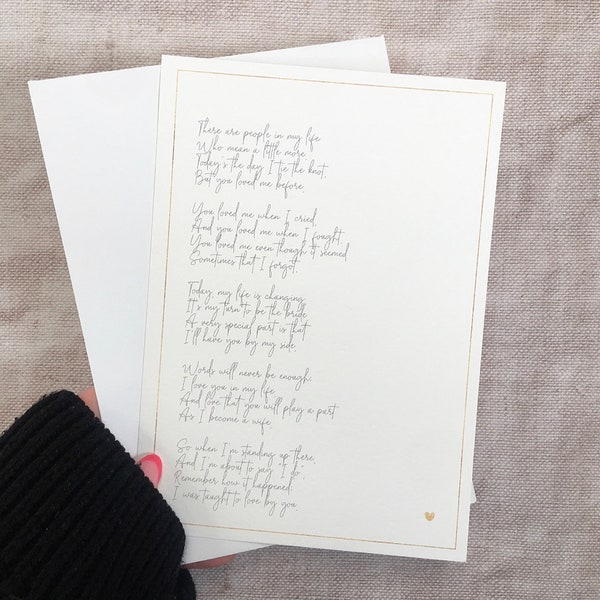 There are people in my life
Who mean a little more.
Today's the day I tie the knot,
But you loved me before.
You loved me when I cried,
And you loved me when I fought,
You loved me even though it seemed
Sometimes that I forgot.
Today, my life is changing
It's my turn to be the bride
A very special part is that
I'll have you by my side.
Words will never be enough,
I love you in my life
And love that you will play a part
As I become a wife.
So when I'm standing up there,
And I'm about to say 'I do'
Remember how it happened:
I was taught to love by you.